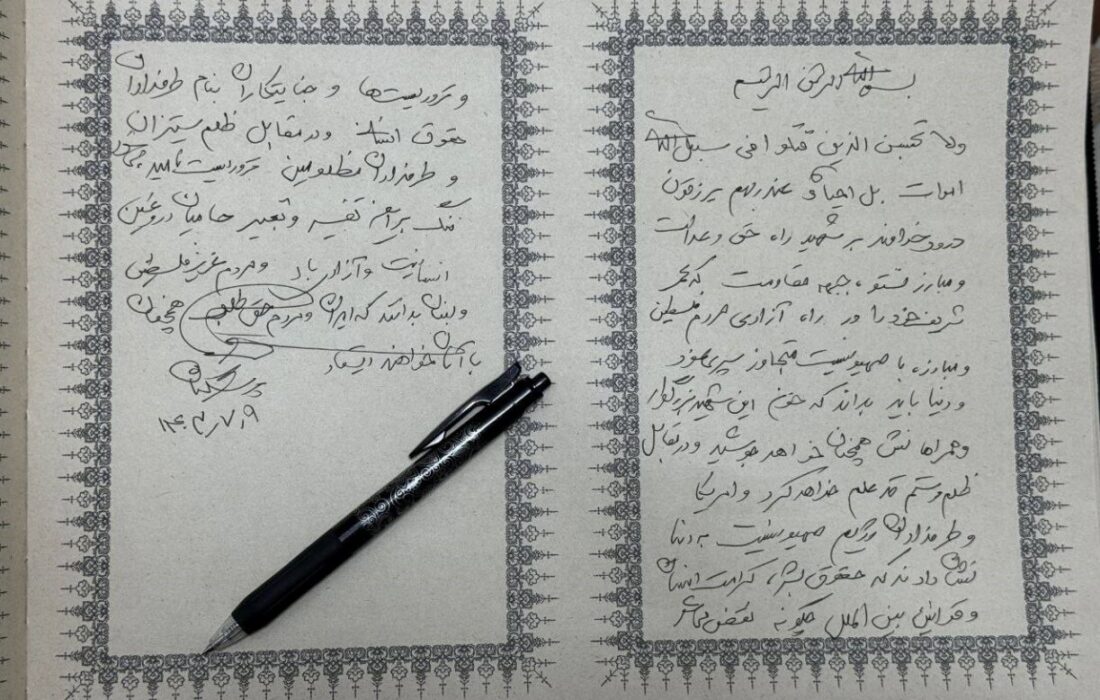 بسم الله الرحمن الرحیم
ولا تحسبن الذین قتلوا فی سبیل الله
اموات بل احیاءً عند ربهم یرزقون
درود خداوند بر شهید راه حق و عدالت
و مبارز نستوه جبهه مقاومت که عمر
شریف خود را در راه آزادی مردم فلسطین
و مبارزه با صهیونیست متجاوز سپری نمود
و دنیا باید بداند که خون این شهید بزرگوار
و همراهانش همچنان خواهد جوشید و در مقابل
ظلم و ستم قد علم خواهد کرد و امریکا
و طرفداران رژیم صهیونیست به دنیا
نشان دادند که حقوق بشر، کرامت انسان
و قوانین بین الملل چگونه نقض
و تروریست‌ها و جنایتکاران بنام طرفداران
حقوق انسان و در مقابل ظلم ستیزان
و طرفداران مظلومین تروریست نامید
ننگ بر این تفسیر و تعبیر حامیان دروغین
انسانیت و آزادی باد و مردم عزیز فلسطین
و لبنان بدانند که ایران و مردم حق طلب همچنان
با آنان خواهند ایستاد
پزشکیان
۱۴۰۳/۷/۹